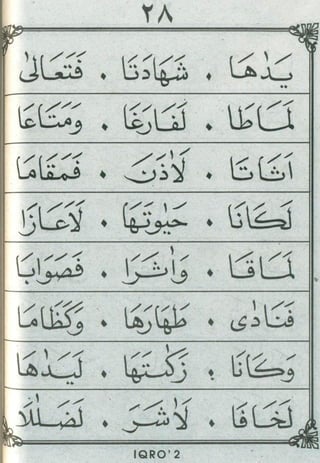 ٢٨
يَدٰهَا . شَهَادَتَا . فَتَعَالٰى
لَمَاطَا . لَفَارِغَا . وَمَتَاعَا
اَثَاثَا . لَاَذَنَ . فَمَقَامَا
لَكَانَا . حَيٰوتَهَا . لَاَعَازَا
لَمَاقَا . وَاٰثَرَا . فَصَوَابَا
فَنَادٰى . طَهَارَهَا . وَكَظَامَا
وَكَانَا . زَكٰتَهَا . لَيَدٰهَا
لَخَافَا . لَاَشَرَ . لَضَلٰلَا
IQRO'2